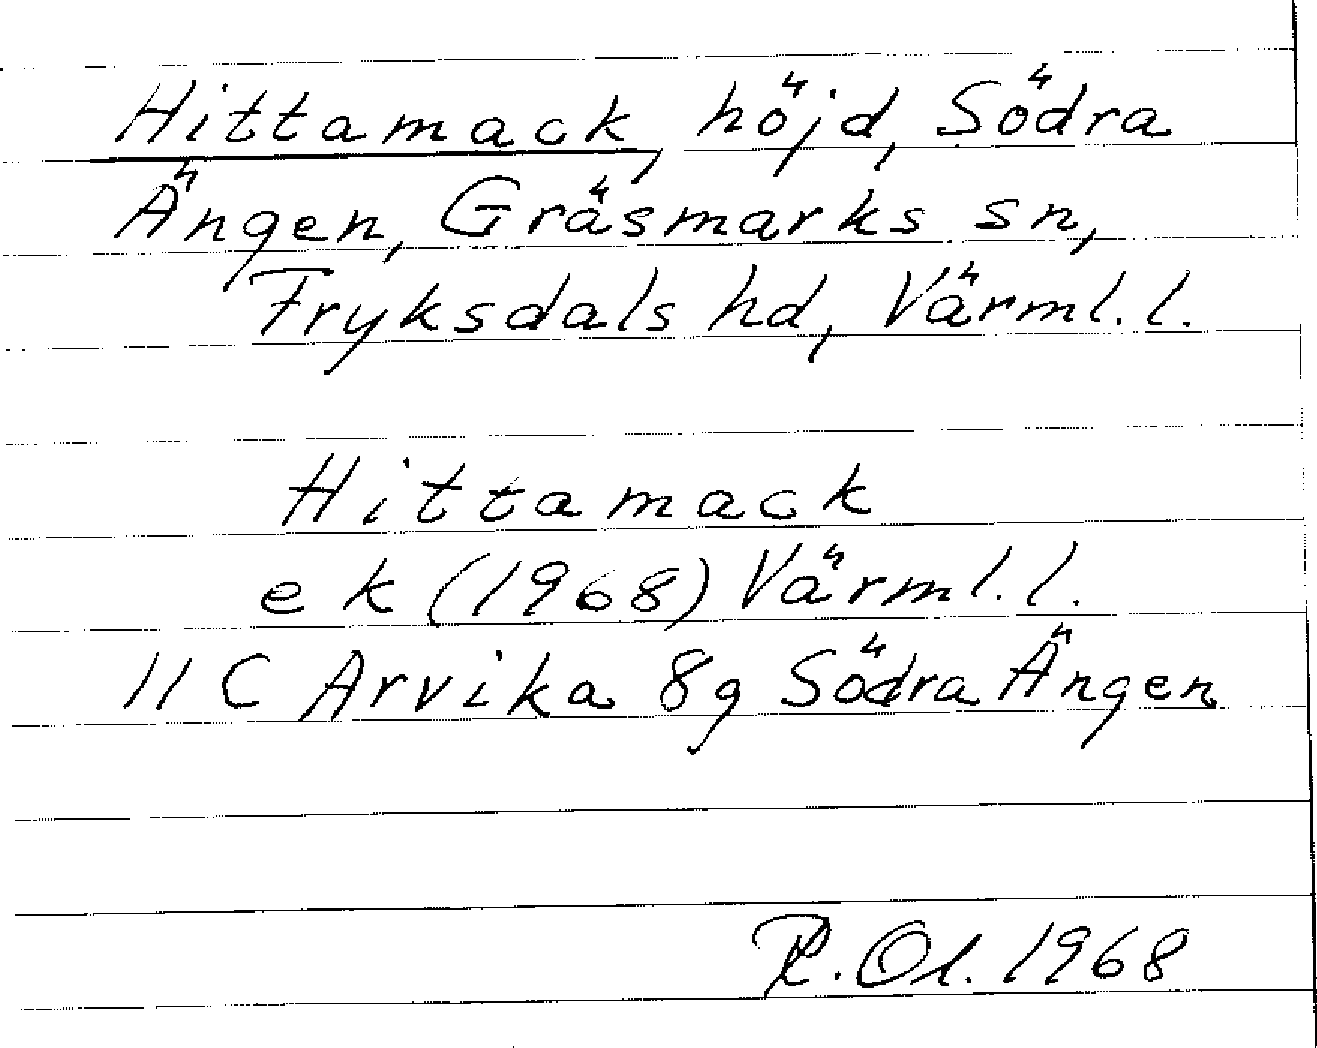 Hittamack, höjd, Södra
Ängen, Gräsmarks sn,
Fryksdals hd, Värml. l.
Hittamack
ek (1968) Värml. l.
11 C Arvika 8g Södra Ängen
R. Ol. 1968